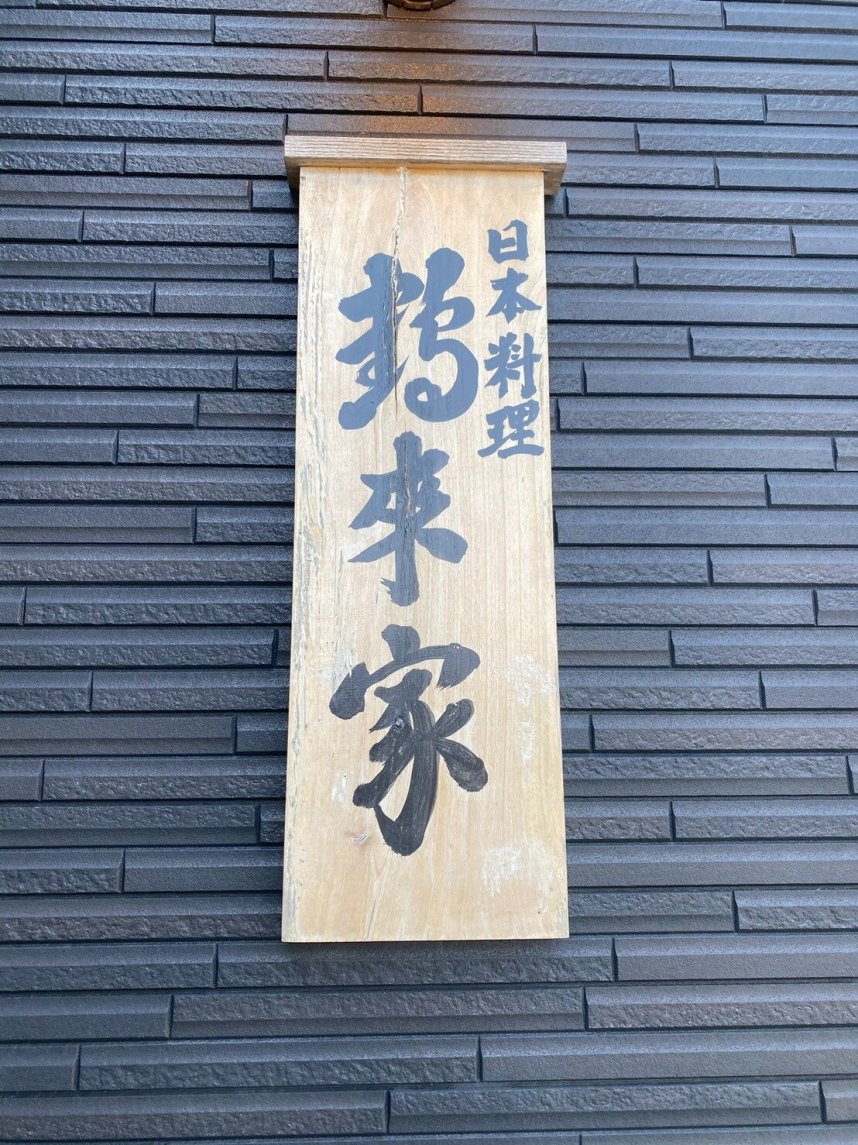 日本料理
鶴來家